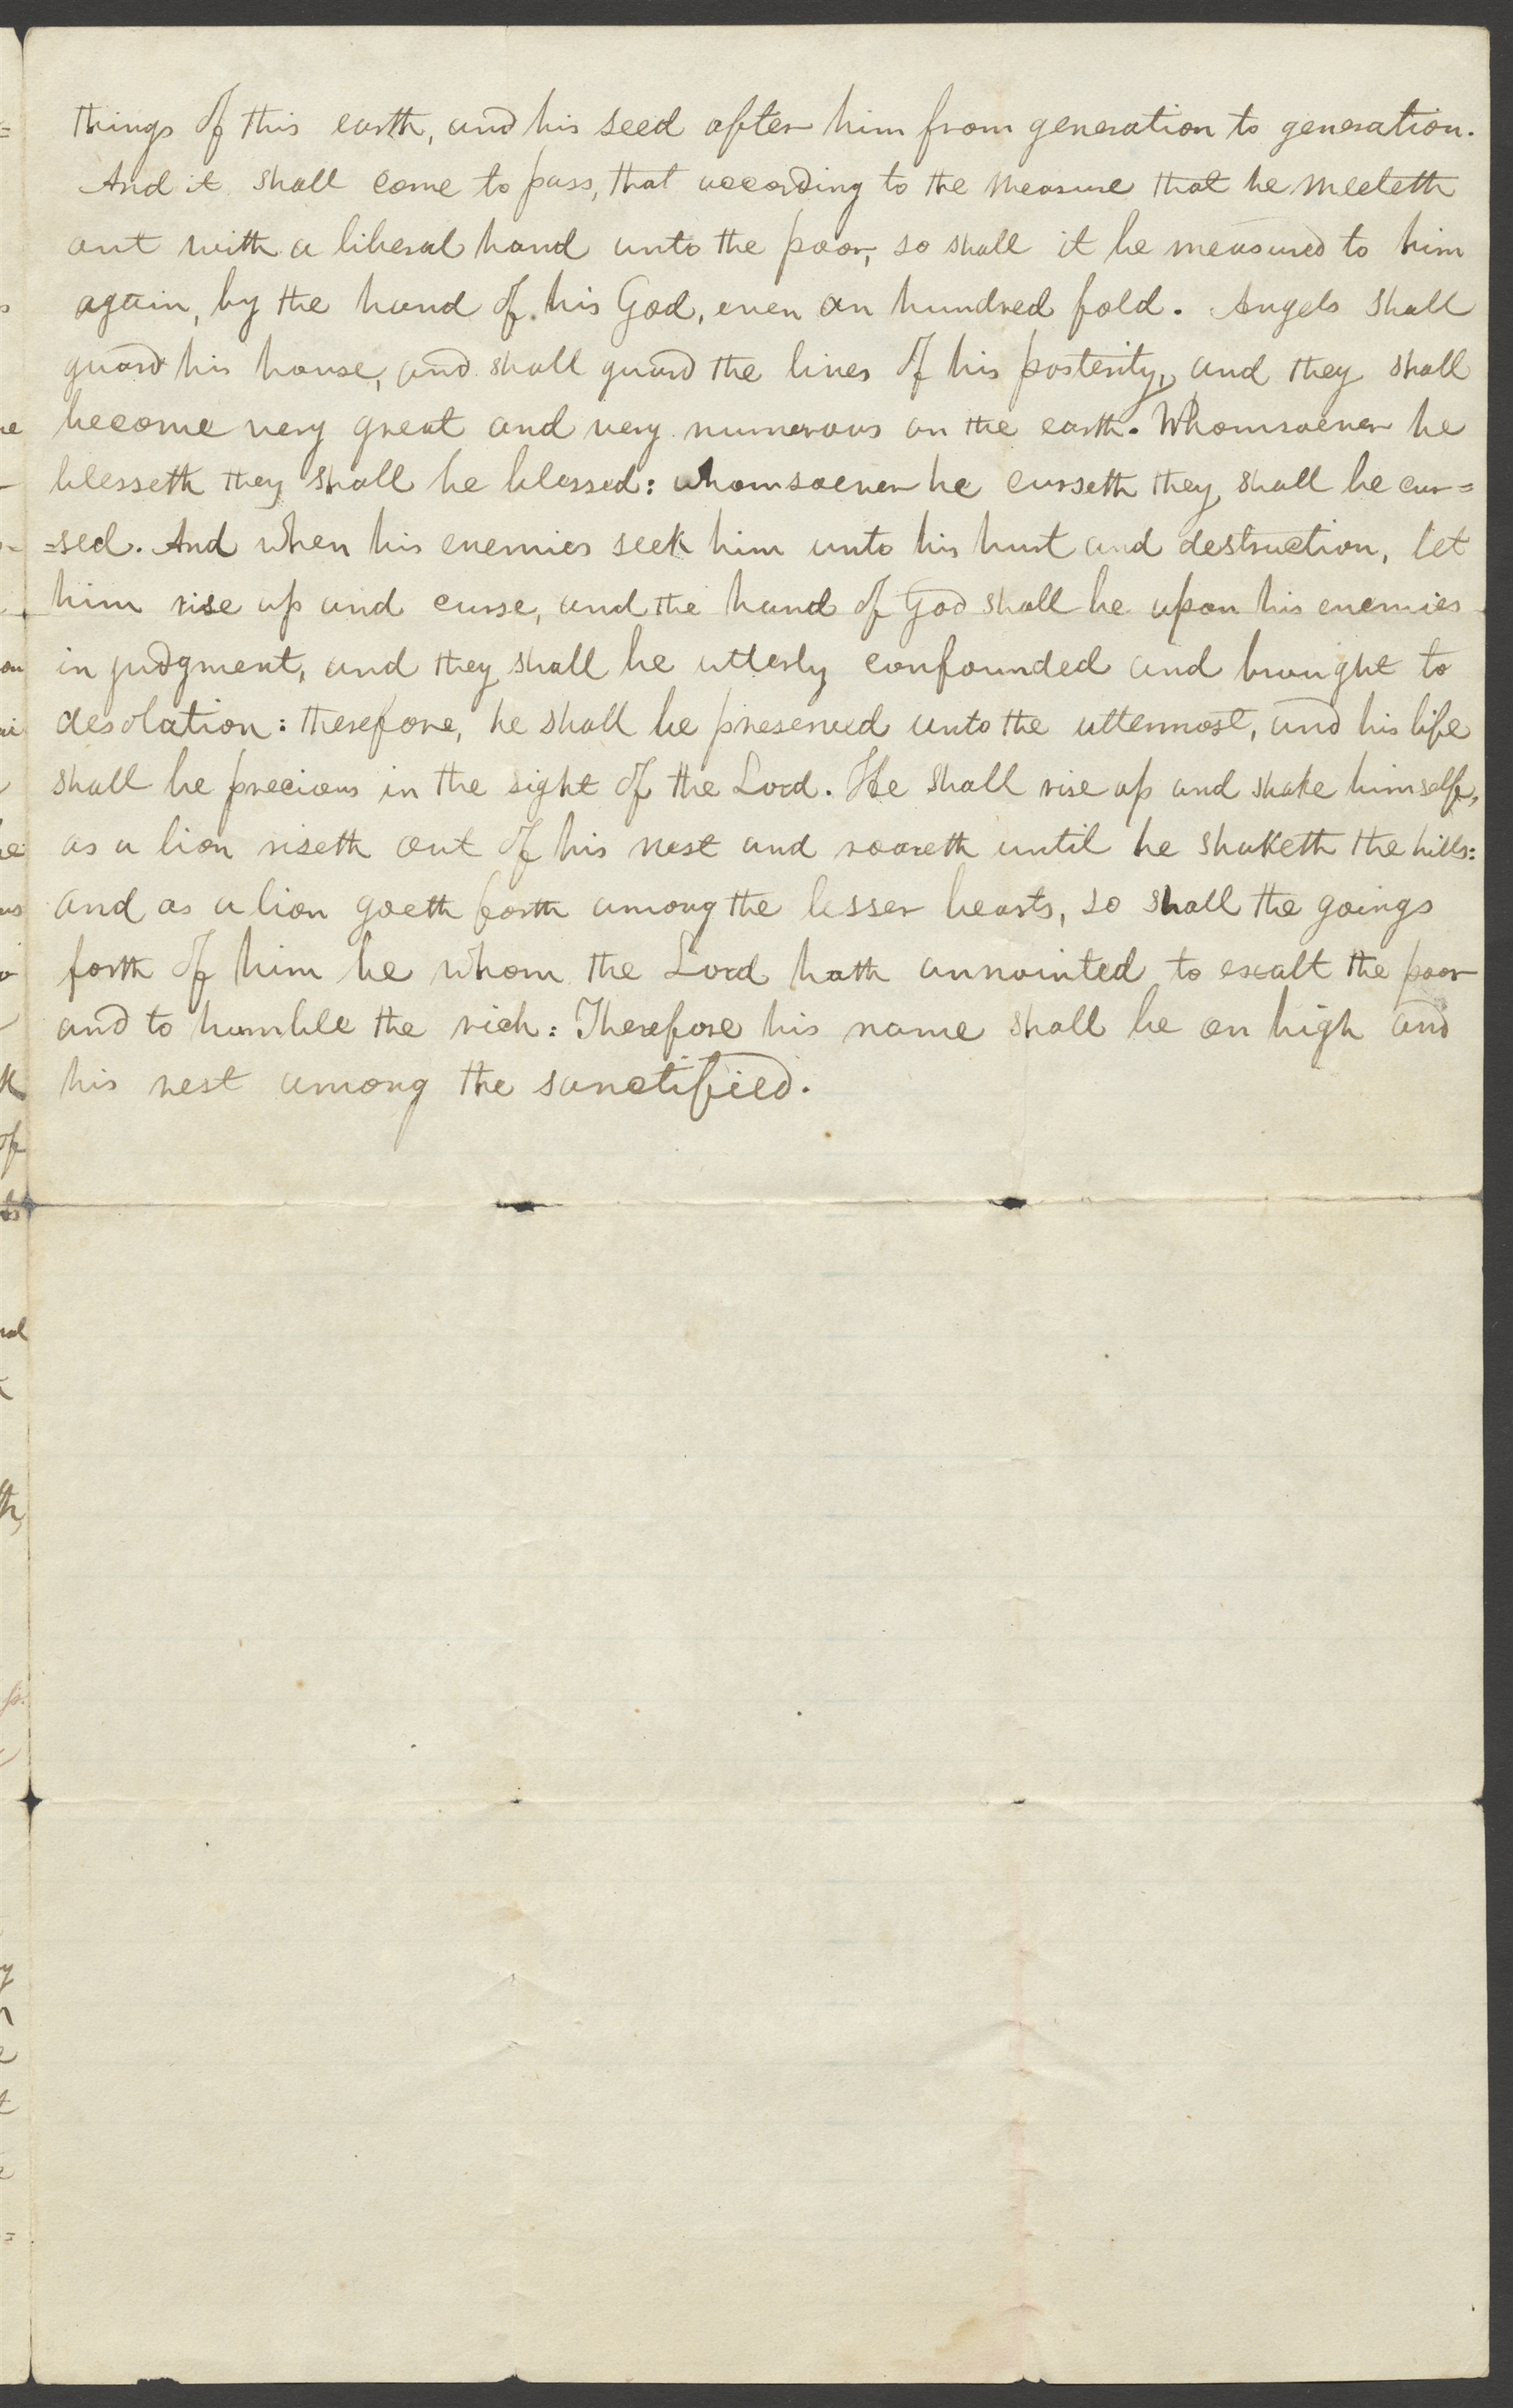 things of this earth, and his seed after him from generation to generation.
And it shall come to pass, that according to the measure that he meeteth
out with a liberal hand unto the poor, so shall it be measured to him
again, by the hand of his God, even an hundred fold. Angels shall
guard his house, and shall guard the lives of his posterity, and they shall
become very great and very numerous on the earth. Whomsoever he
blesseth they shall be blessed: whomsoever he curseth they shall be cur=
=sed. And when his enemies seek him unto his hurt and destruction, let
him rise up and curse, and the hand of God shall be upon his enemies
in judgment, and they shall be utterly confounded and brought to
desolation: therefore, he shall be preserved unto the uttermost, and his life
shall be precious in the sight of the Lord. He shall rise up and shake himself,
as a lion riseth out of his nest and roareth until he shaketh the hills:
and as a lion goeth forth among the lesser beasts, so shall the goings
forth of him be whom the Lord hath annointed to exalt the poor
and to humble the rich: Therefore his name shall be on high and
his rest among the sanctified.